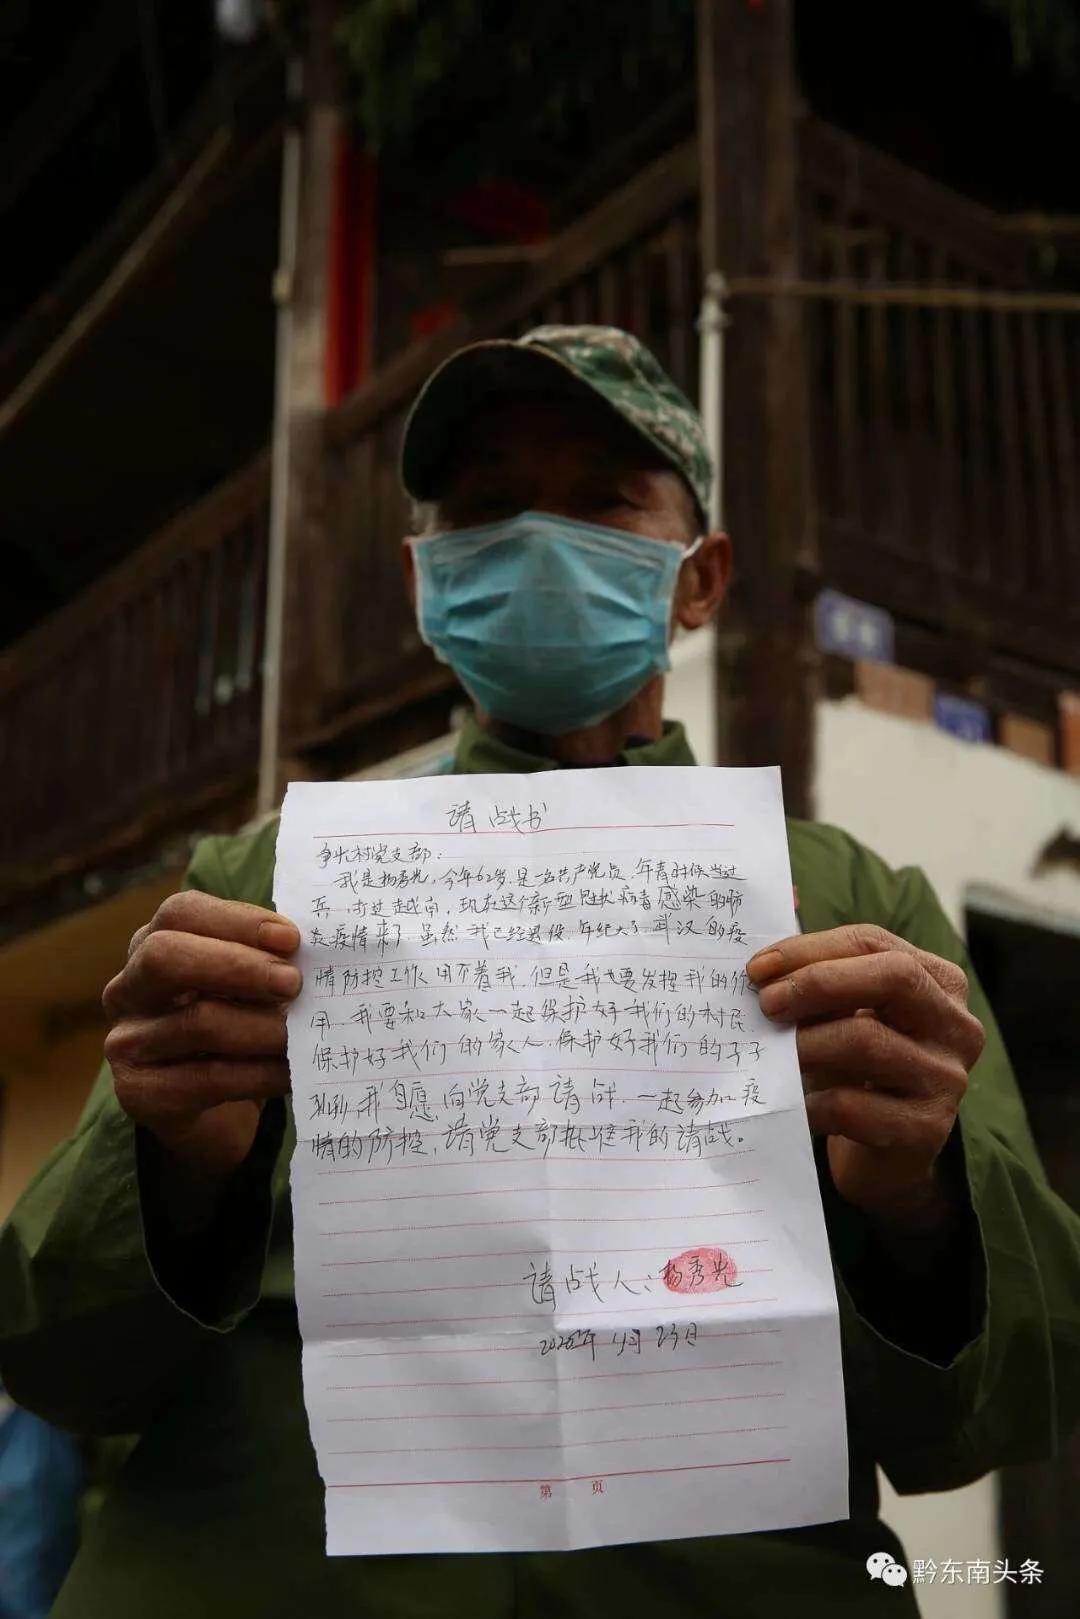 请战书
村党支部：
我是杨秀光，今年62岁，是一名共产党员，年青时候当过
兵，打过越南，现在这个新型冠状病毒感染的肺
炎疫情来了，虽然我已经退役，年纪大了，武汉的疫
情防控工作用不着我，但是我也要发挥我的作
用，我要和大家一起保护好我们的村民，
保护好我们的家人，保护好我们的子子
孙孙，我自愿向党支部请战，一起参加疫
情的防控，请党支部批准我的请战。
请战人：杨秀光
2020年1月23日
第 页
黔东南头条